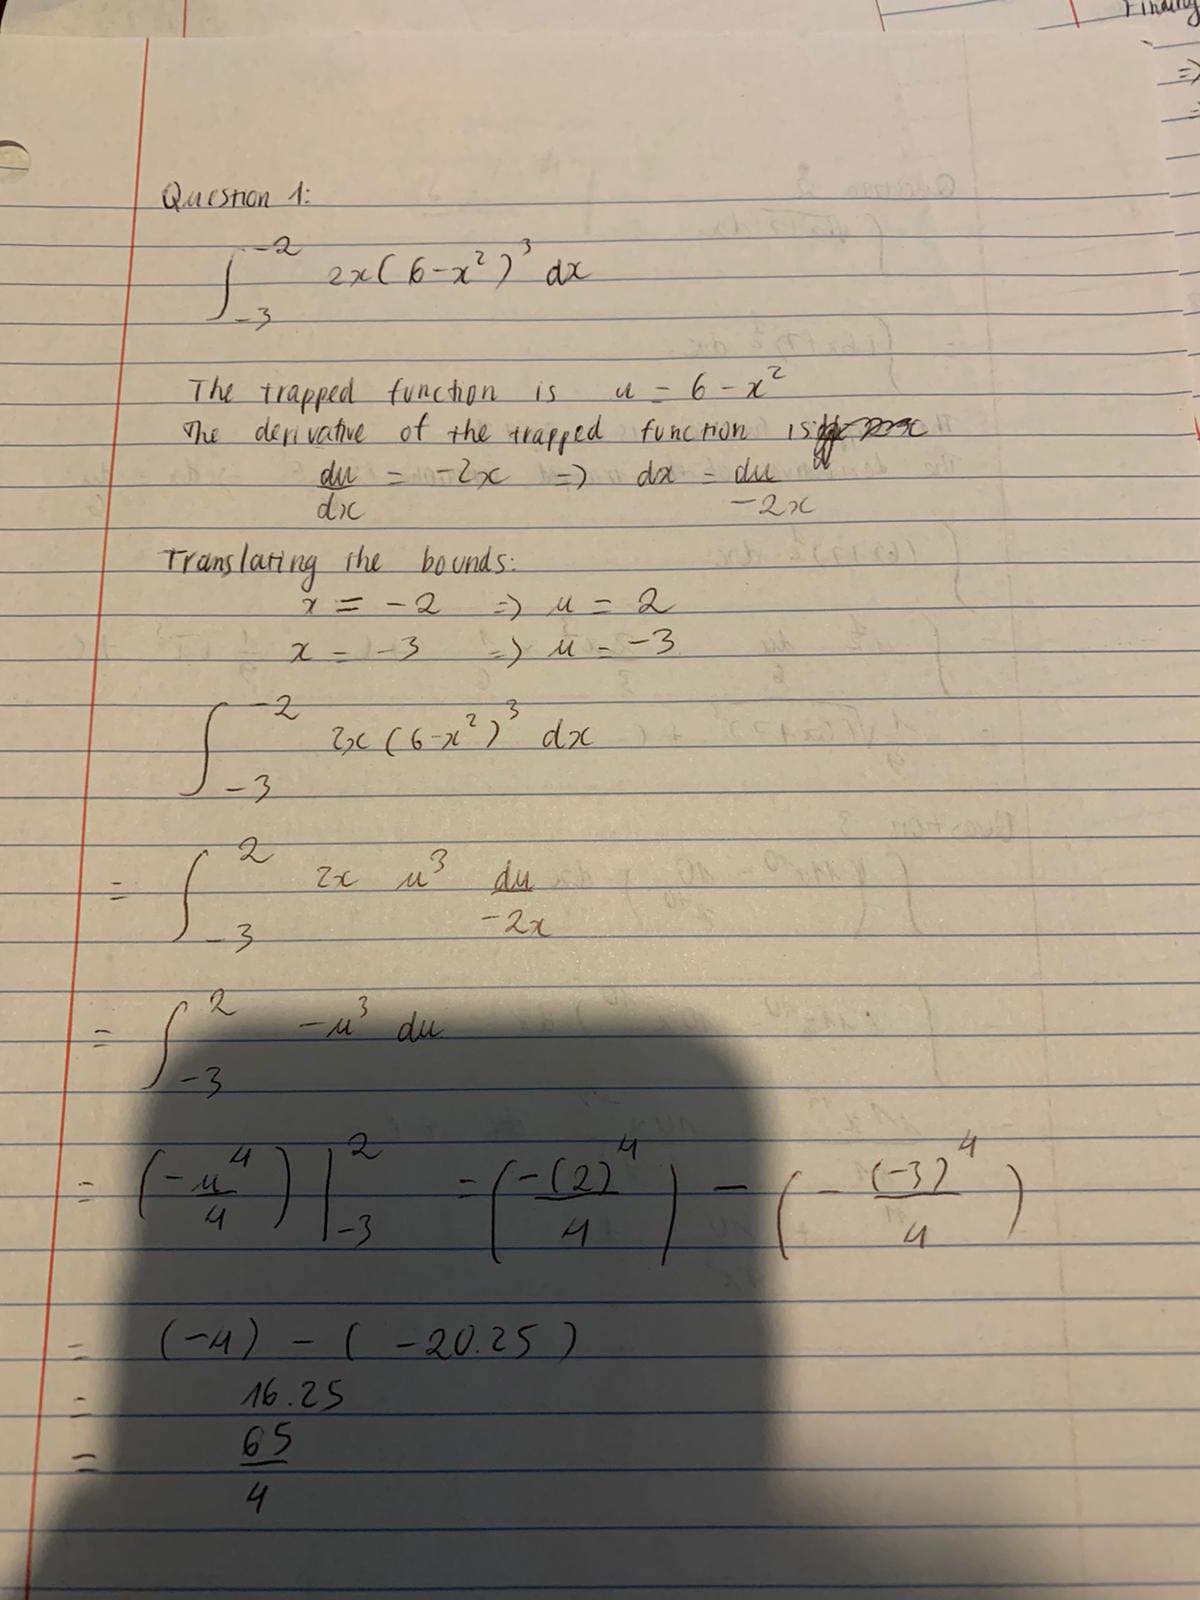 Finding
=>
Question 1:
∫_{-3}^{-2} 2x(6-x²)³ dx
The trapped function is u = 6 - x²
The derivative of the trapped function is
du/dx = -2x => dx = du/-2x
Translating the bounds:
x = -2 => u = 2
x = -3 => u = -3
∫_{-3}^{-2} 2x(6-x²)³ dx
= ∫_{-3}^{2} 2x u³ du/-2x
= ∫_{-3}^{2} -u³ du
= (-u⁴/4)|_{-3}^{2} = (-(2)⁴/4) - (-(-3)⁴/4)
= (-4) - (-20.25)
= 16.25
= 65/4